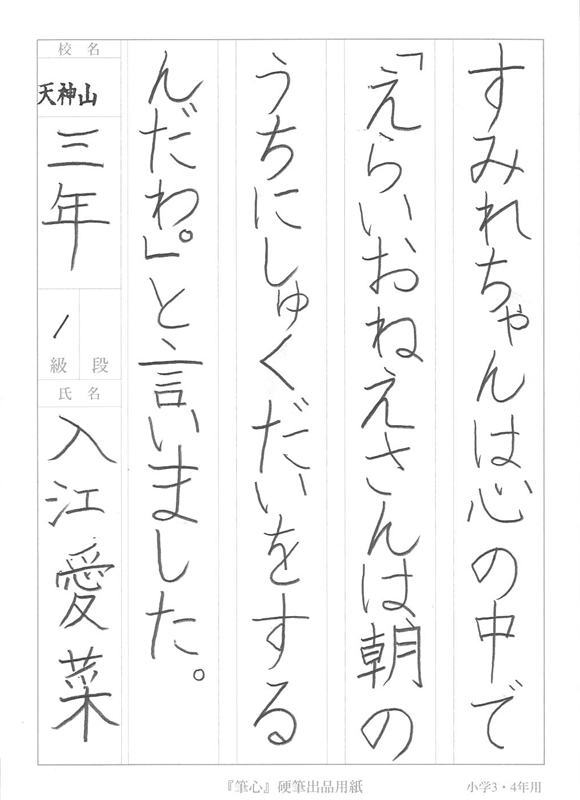 すみれちゃんは心の中で
「えらいおねえさんは、朝の
うちにしゅくだいをする
んだわ。」と言いました。
校名
天神山
三年
級 段
氏名
入江愛菜
『筆心』硬筆出品用紙
小学3・4年用